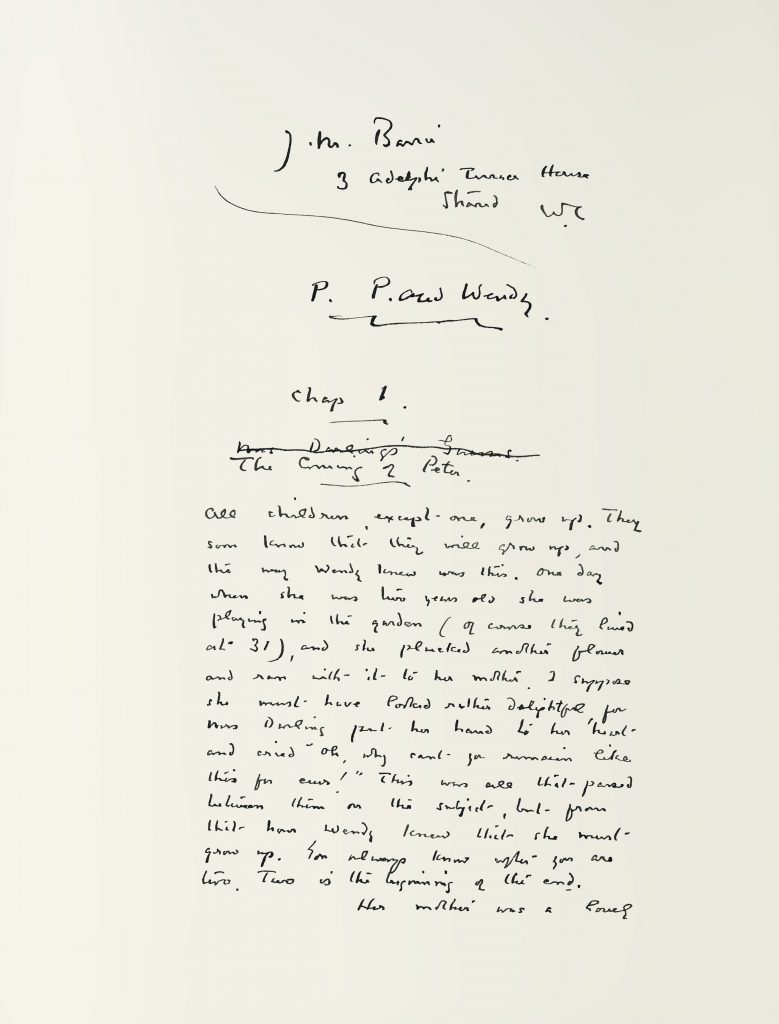 J.M. Barrie
3 Adelphi Terrace House
Strand W.C
P. P. and Wendy.
Chap 1.
Mrs Darling's
The Coming of Peter.
All children, except one, grow up. They
soon know that they will grow up, and
the way Wendy knew was this. One day
when she was two years old she was
playing in the garden (of course they lived
at 31), and she plucked another flower
and ran with it to her mother. I suppose
she must have looked rather delightful for
Mrs Darling put her hand to her heart
and cried "Oh, why cant you remain like
this for ever!" This was all that passed
between them on the subject, but from
that hour Wendy knew that she must
grow up. You always know after you are
two. Two is the beginning of the end.
Her mother was a lovely